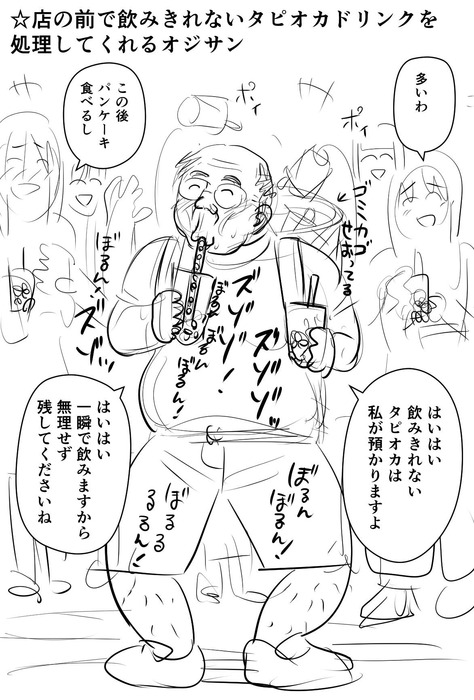 ☆店の前で飲みきれないタピオカドリンクを
処理してくれるオジサン
多いわ
ポイ
ポイ
この後
パンケーキ
食べるし
ゴミカゴ
せおってる
ぼるん!
ズゾゾッ
ズゾゾ!
ズゾゾ
ぼるん
ぼるん!
はいはい
飲みきれない
タピオカは
私が預かりますよ
はいはい
一瞬で飲みますから
無理せず
残してくださいね
ぼるん
ぼるん!
ぼるる
るるん!